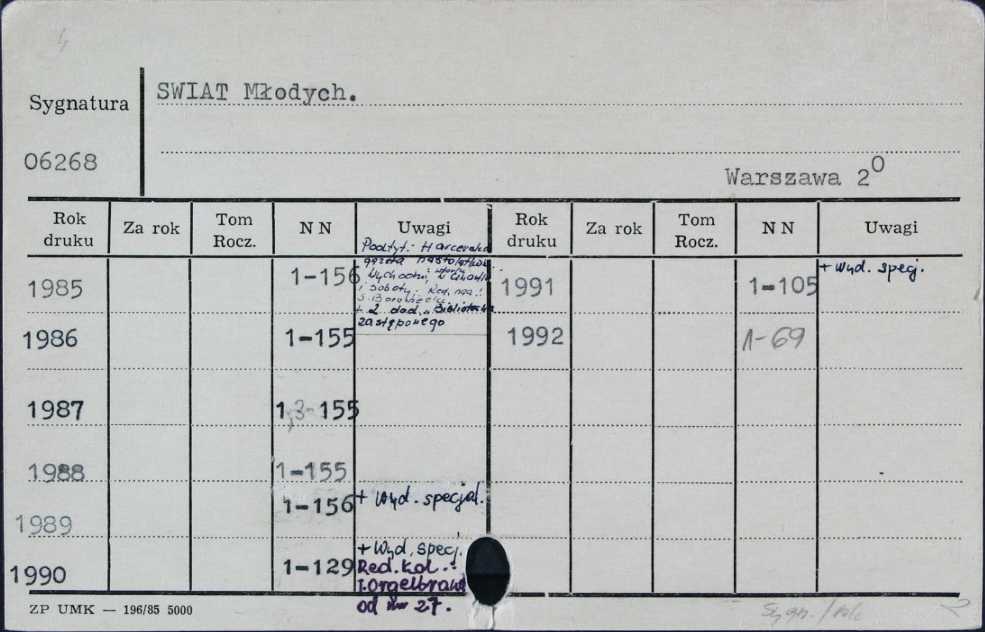 SWIAT Młodych.
Sygnatura
06268
Warszawa 2⁰
Rok druku Za rok Tom Rocz. N N Uwagi Rok druku Za rok Tom Rocz. N N Uwagi
Podtyt.: Harcerska
gazeta nastolatków
Wychodzi: wtorki,
i soboty. Red. nacz.:
+ 2 dod. "Biblioteczka
zastępowego
1985 1-156 1991 1-105 + Wyd. specj.
1986 1-155 1992 1-69
1987 1,3-155
1988 1-155
1989 1-156 + Wyd. specjal.
1990 1-129 + Wyd. specj.
Red. kol.
od nr 27.
ZP UMK — 196/85 5000
Sygn./rok